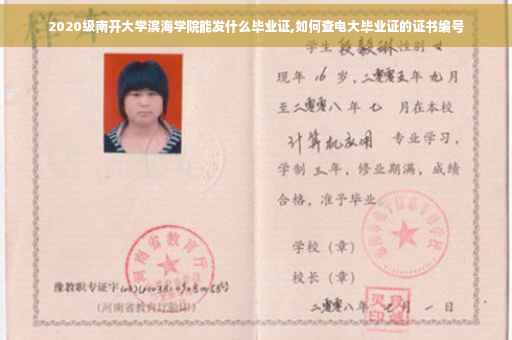 2020级南开大学滨海学院能发什么毕业证,如何查电大毕业证的证书编号
样本
学生段毅琳性别女
现年16岁,二零零五年九月
至二零零八年七月在本校
计算机应用 专业学习,
学制三年,修业期满,成绩
合格,准予毕业
学校(章)
校长(章)
河南省教育厅
豫教职专证字
(河南省教育厅验印)
二零零八年 月一日